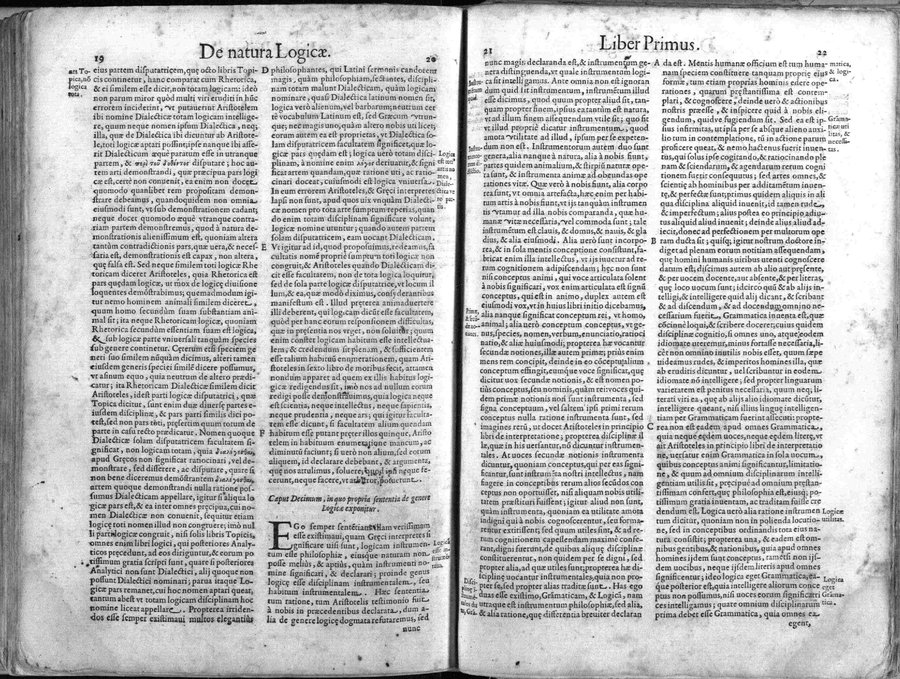 19
De natura Logicæ.
20
eius partem disputatricem, quę octo libris Topi-
cis continetur, hanc comparat cum Rhetorica,
& ei similem esse dicit, non totam logicam: ideò
non parum miror quòd multi viri eruditi in hęc
errorem inciderint, vt putauerint Aristotelem
ibi nomine Dialecticæ totam logicam intellige-
re, quum neque nomen ipsum Dialecticæ, neq;
illa, quæ de Dialectica ibi dicuntur ab Aristote-
le, toti logicæ aptari possint; ipse nanque ibi asse-
rit Dialecticam ęquè esse apta in vtrunque
partem, & disputare; hoc au-
tem arti demonstrandi, quæ præcipua pars logi-
cæ est, certè non conuenit, ea enim non docet
quomodo quamlibet rem propositam demon-
strare debeamus, quandoquidem non omnia
eiusmodi sunt, vt sub demonstrationem cadant,
neque docet quomodo æquè vtranque contra-
riam partem demonstremus, quod à natura de-
monstrationis alienissimum est, quoniam altera
tantùm contradictionis pars, quæ vera, & neces-
saria est, demonstrationis est capax, non altera,
quę falsa est. Sed neque similem toti logicæ Rhe
toricam diceret Aristoteles, quia Rhetorica est
pars quędam logicæ, vt mox de logicę diuisione
loquentes demonstrabimus, quemadmodum igi-
tur nemo hominem animali similem diceret,
quum homo secundùm suam substantiam ani-
mal sit; ita neque Rhetoricam logicæ, quoniam
Rhetorica secundùm essentiam suam est logica,
& sub logicæ parte vniuersali tanquàm species
sub genere continetur. Cęterùm etsi speciem ge
neri suo similem nunquàm dicimus, alteri tamen
eiusdem generis speciei similē dicere possumus,
vt asinum equo, quia neutrum de altero prædi-
catur; ita Rhetoricam Dialecticæ similem dicit
Aristoteles, idest parti logicæ disputatrici, quæ
Topica dicitur, sunt enim duę diuersę partes e-
iusdem disciplinæ, & pars parti similis dici po-
test, sed non pars tōti, pręsertim quum totum de
parte in casu recto prædicatur. Nomen quoque
Dialecticæ solam disputatricem facultatem si-
gnificat, non logicam totam, quia
apud Gręcos non significat ratiocinari, vel de-
monstrare, sed disserere, ac disputare, quare si
non bene diceremus demonstrantem
artem quoque demonstrandi nulla ratione pos-
sumus Dialecticam appellare, igitur si aliqua lo
gicæ pars est, & ea inter omnes præcipua, cui no-
men Dialecticæ non conuenit, sequitur etiam
logicę toti nomen illud non congruere; imò nul
li parti logicę congruit, nisi solis libris Topicis,
omnes enim libri logici, qui posteriores Analy-
ticos pręcedunt, ad eos diriguntur, & eorum po
tissimum gratia scripti sunt, quare si posteriores
Analytici non sunt Dialectici, alij quoque non
possunt Dialectici nominari; parua itaque Lo-
gicæ pars remanet, cui hoc nomen aptari queat,
tantum abest vt totam logicam disciplinam hoc
nomine liceat appellare. Propterea irriden-
dos esse semper existimaui multos elegantius
philosophantes, qui Latini sermonis candorem
magis, quàm philosophiam, sectantes, discipli-
nam totam malunt Dialecticam, quàm logicam
nominare, quasi Dialectica Latinum nomen sit,
logica verò alienum, vel barbarum; neutrum cer
tè vocabulum Latinum est, sed Græcum vtrun-
que; nec magis vno, quàm altero nobis vti licet,
eorum autem ea est proprietas, vt Dialectica so
lam disputatricem facultatem significet, quę lo-
gicæ pars quędam est; logica verò totam disci-
plinam, à nomine enim deriuatur, & signi
ficat artem quandam, quæ ratione vti, ac ratio-
cinari docet, cuiusmodi est logica vniuersa.
In eum errorem Aristoteles, & Gręci interpretes
lapsi non sunt, apud quos vix vnquàm Dialecti-
cæ nomen pro tota arte sumptum reperias, quan
do enim totam disciplinam significare volunt,
logicæ nomine vtuntur; quando autem partem
solam disputatricem, eam vocant Dialecticam.
Vt igitur ad id, quod proposuimus, redeamus, fa
cultatis nomē propriè sumptū toti logicæ non
congruit, & Aristoteles quando Dialecticam di-
cit esse facultatem, non de tota logica loquitur,
sed de sola parte logicæ disputatrice, vt locum il
lum, & ea, quæ modò diximus, considerantibus
manifestum est. Illud prętereà animaduertere
illi deberent, qui logicam dicunt esse facultatem,
quòd per hanc eorum responsionem difficultas,
quæ in pręsentia nos vrget, non soluitur; quum
enim constet logicam habitum esse intellectua-
lem, & credendum sit plenam, & sufficientem
esse talium habituum enumerationem, quam Ari-
stoteles in sexto libro de moribus fecit, attamen
nondum apparet ad quem ex illis habitus logi-
cæ redigendus sit, imò nos ad nullum eorum
redigi posse demonstrauimus, quia logica neque
est scientia, neque intellectus, neque sapientia,
neque prudentia, neque ars; qui igitur faculta-
tem esse dicunt, si facultatem alium quendam
habitum esse putant pręter illos quinque, Aristo
telem in habituum enumeratione mancum, ac
diminutū faciunt; si verò non alium, sed eorum
aliquem, id declarare debebant, & argumenta,
quę nos attulimus, soluere, quod ipsi neque fe-
cerunt, neque facere, vt arbitror, potuerunt.
Caput Decimum, in quo propria sententia de genere
Logicæ exponitur.
EGo semper sententiam illam verissimam
esse existimaui, quam Gręci interpretes si
gnificare uisi sunt, logicam instrumen-
tum esse philosophiæ, eiusque naturam non
posse meliùs, & aptiùs, quàm instrumenti no-
mine significari, & declarari; proinde genus
logicę esse disciplinam instrumentalem, seu
habitum instrumentalem. Hæc sententia
tum ratione, tum Aristotelis testimonio fuit
à nobis in præcedentibus declarata, dum a-
lia de genere logicę dogmata refutaremus, sed
nunc
21
Liber Primus.
22
nunc magis declaranda est, & instrumenti ge-
nera distinguenda, vt quale instrumentum logi-
ca sit intelligamus. Ante omnia non est ignotan
dum quid sit instrumentum, instrumētum illud
esse dicimus, quod quum propter aliud sit, tan-
quàm propter finem, ipsius ea tantùm est natura,
vt ad illum finem assequendum vtile sit; quo sit
vt illud propriè dicatur instrumentum, quod
amota vtilitate ad illud, ipsum per se expeten-
dum non est. Instrumentorum autem duo sunt
genera, alia nanque à natura, alia à nobis sunt;
partes quidem animalium, & stirpiū naturę ope-
ra sunt, & instrumenta animæ ad obeundas ope
rationes vitæ. Quę verò à nobis fiunt, alia corpo
rea sunt, vt omnia artefacta, hæc enim per habi-
tum artis à nobis fiunt, vt ijs tanquàm instrumen
tis vtamur ad illa nobis comparanda, quæ hu-
manæ vitæ necessaria, vel commoda sunt; tale
instrumentum est clauis, & domus, & nauis, & gla
dius, & alia eiusmodi. Alia uerò sunt incorpo-
rea, & in sola mentis conceptione consistunt, fa-
bricat enim illa intellectus, vt ijs iuuetur ad re-
rum cognitionem adipiscendam; hęc non sunt
nisi conceptus animi, qui voce articulata solent
à nobis significari, vox enim articulata est signū
conceptus, qui est in animo, duplex autem est
eiusmodi vox, vt in huius libri initio dicebamus,
alia nanque significat conceptum rei, vt homo,
animal; alia uerò conceptum conceptus, vt ge-
nus, species, nomen, verbum, enunciatio, ratioci
natio, & aliæ huiusmodi; propterea hæ vocantur
secundæ notiones, illæ autem primæ; priùs enim
mens rem concipit, deinde in eo conceptu alium
conceptum effingit, eumque voce significat, quę
dicitur uox secundę notionis, & est nomen po-
tiùs conceptus, seu nominis, quàm rei: voces qui
dem primæ notionis non sunt instrumenta, sed
signa conceptuum, vel saltem ipsi primi rerum
conceptus nulla ratione instrumenta sunt, sed
imagines rerū, ut docet Aristoteles in principio
libri de interpretatione; propterea disciplinæ il
læ, quæ in his uersantur, nō dicuntur instrumen-
tales. At uoces secundę notionis instrumenta
dicuntur, quoniam conceptus, qui per eas signi-
ficantur, sunt instrumēta nostri intellectus, nam
fugere in conceptibus rerum alios secūdos con
ceptus non oportuisset, nisi aliquam nobis utili-
tatem præstituri fuissent; igitur aliud non sunt,
quàm instrumenta, quoniam ea utilitate amota
indigni qui à nobis cognoscerentur, seu forma-
rentur extitissent; sed quum utiles sint, & ad re-
rum cognitionem capessendam maximè confe-
rant, digni fuerunt, de quibus aliquę disciplinæ
constituerentur, non quidem per se digni, sed
propter alia, ad quæ utiles sunt; propterea hæ di-
sciplinæ uocantur instrumentales, quia non pro-
pter se, sed propter alias traditæ sunt. Has ego
duas esse existimo, Grāmaticam, & Logicā, nam
utraque est instrumentum philosophiæ, sed alia,
& alia ratione, quę differentia breuiter declaran
da est. Mentis humanæ officium est tum huma-
nam speciem constituere tanquam propriā eius
formā, tum etiam proprias hominis edere ope-
rationes, quarum præstantissima est contempla-
ri, & cognoscere, deinde uerò & actionibus
nostris præesse, & inspicere quid à nobis eli-
gendum, quidve fugiendum sit. Sed ea est ip-
sius infirmitas, ut ipsa per se absque alieno auxi-
lio tum in contemplatione, tū in actione parum
proficere queat, & nemo hactenus fuerit inuen-
tus, qui solus ipse cogitando, & ratiocinando ple
nam & sciendarum, & agendarum rerum cogni
tionem fuerit consequutus; sed artes omnes, &
scientiæ ab hominibus per additamentum inuen-
tę, & perfectæ sunt; primus quidem aliquis in ali
qua disciplina aliquid inuenit, id tamen rude,
& imperfectum; alius postea eo principio adiu-
tus aliquid aliud inuenit; deinde alius aliud ad-
iecit, donec ad perfectionem per multorum ope
ram ducta sit; quisq; igitur nostrùm doctore in-
diget ad plenam eorum notitiam assequendam,
quę homini humanis uiribus utenti cognoscere
datum est, discimus autem ab alio aut præsente,
& per uocem docente, aut absente, & per literas,
quę loco uocum sunt; idcirco quū & ab alijs in-
telligi, & intelligere quid alij dicant, & scribant
& ad discendum, & ad docendum omnino ne-
cessarium fuerit, Grammatica inuenta est, quæ
cōcinnè loqui, & scribere docet; cuius quidem
disciplinæ cognitio, si omnes uno, atque eodem
idiomate uteremur, minus fortasse necessaria, li-
cèt non omnino inutilis nobis esset, quum sæpe
decipiamur rudes, & imperitos homines illa, quæ
ab eruditis dicuntur, uel scribuntur in eodem
idiomate nō intelligere; sed propter linguarum
varietatem maximè est necessaria, quum neq; li-
terati viri ea, quæ ab alio idiomate dicūtur,
intelligere queant, nisi illius linguę intelligentē
per Grammaticam fuerint assecuti: propte-
rea non est eadem apud omnes Grammatica,
quia neque eędem uoces, neque eędem literę, vt
ait Aristoteles in principio libri de interpretatio
ne, uersatur enim Grammatica in sola uocum,
quibus conceptus animi significantur, limitatio-
ne, & quum ad omnium disciplinarum intelli-
gentiam utilis sit, præcipuè ad omnium præstan-
tissimam confert, quę philosophia est, eiusq; po-
tissimum gratia inuentam, ac traditam fuisse cre-
dendum est. Logica uerò alia ratione instrumen
tum dicitur, quoniam non in polienda locutio-
ne, sed in conceptibus ordinandis tota eius na-
tura consistit; propterea una, & eadem est om-
nibus gentibus, & nationibus, quia apud omnes
homines ijdem sunt conceptus, tametsi non ijs-
dem uocibus, neque ijsdem literis apud omnes
significentur; ideo logica eget Grammatica, ea-
que posterior est, quia intelligere aliorum conce
ptus non possumus, nisi uoces eorum significatri
ces intelligamus; quare omnium disciplinarum
prima debet esse Grammatica, quia omnes ea
egent,